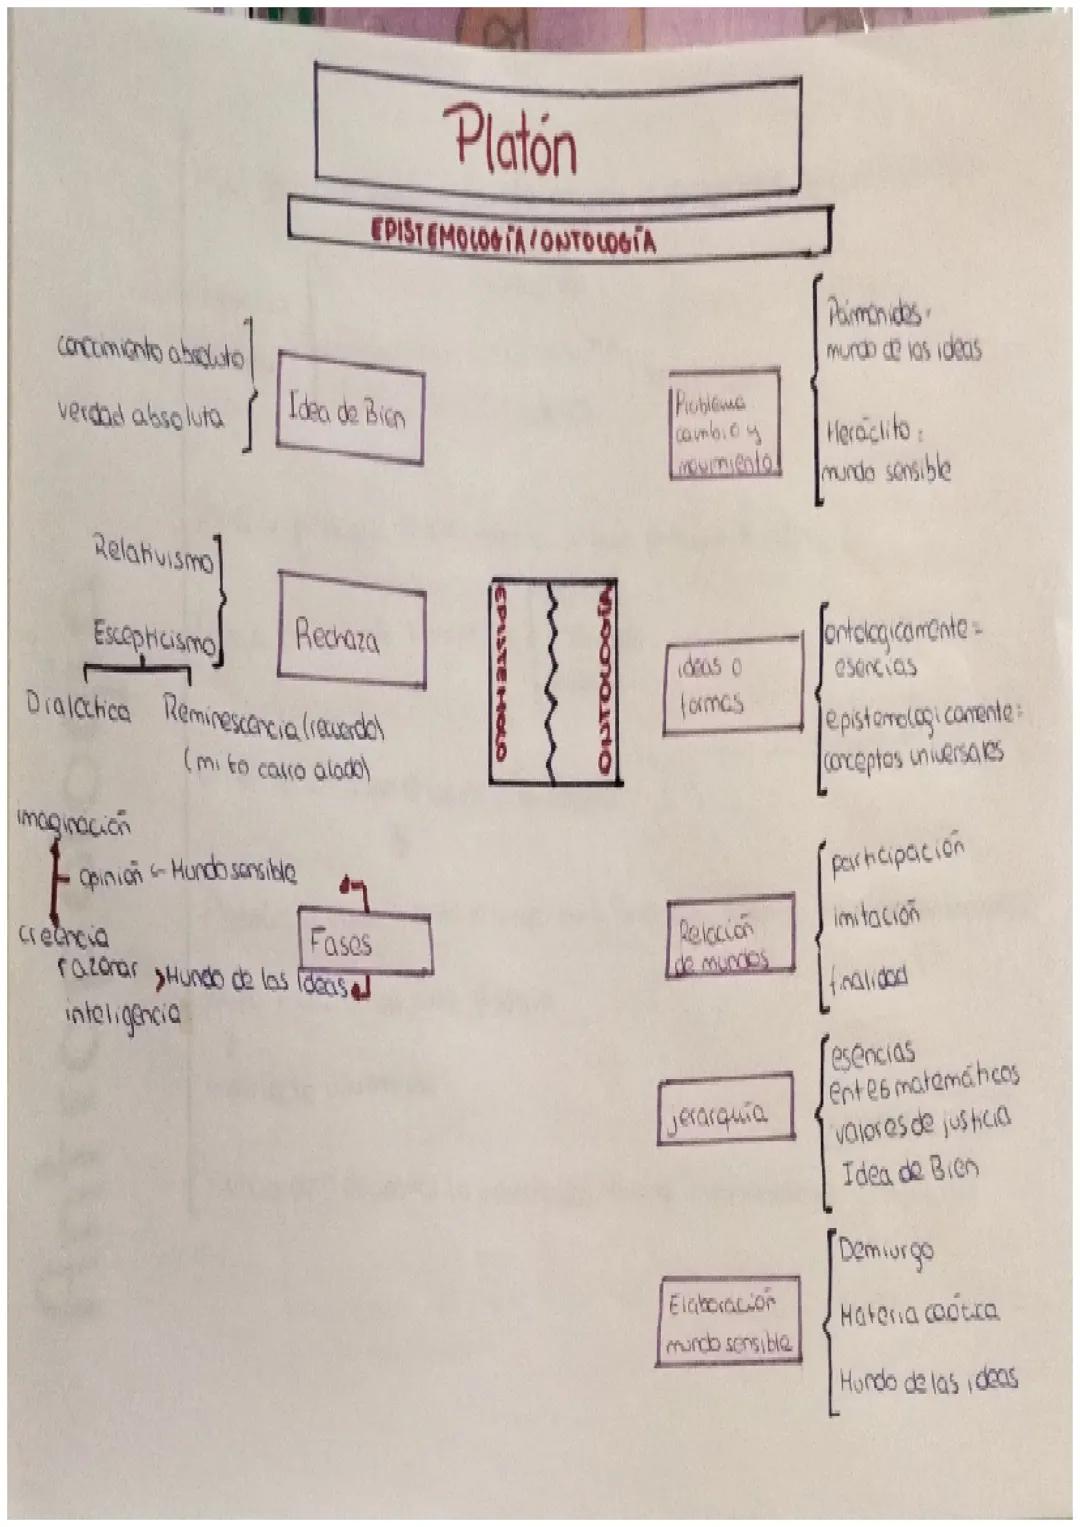 Platón
EPISTEMOLOGÍA/ONTOLOGÍA
conocimiento absoluto
verdad absoluta
Idea de Bien
Relativismo
Escepticismo
Rechaza
Dialéctica
Reminescencia (recuerdo)
(mito carro alado)
imaginación
opinión
Mundo sensible
creencia
razonar
Mundo de las Ideas
inteligencia
Fases
ONTOLOGÍA
Problema
cambio y
movimiento
Parménides:
mundo de las ideas
Heráclito:
mundo sensible
ideas o
formas
ontologicamente=
esencias
epistemologicamente:
conceptos universales
Relación
de mundos
participación
imitación
finalidad
jerarquía
esencias
entes matemáticos
valores de justicia
Idea de Bien
Elaboración
mundo sensible
Demiurgo
Materia caótica
Mundo de las ideas